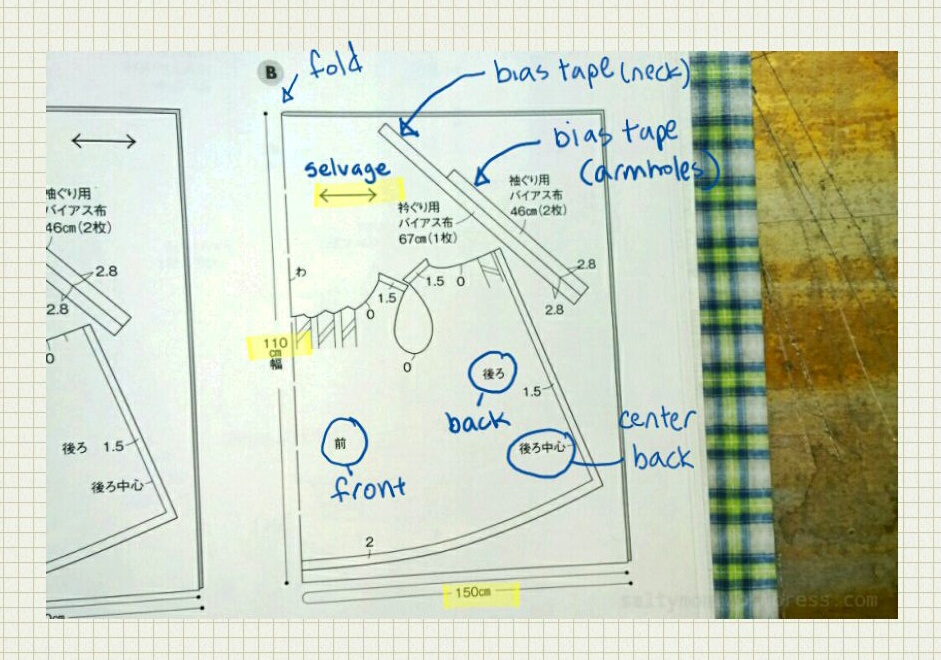 B
fold
bias tape (neck)
bias tape
(armholes)
selvage
袖ぐり用
バイアス布
46cm(2枚)
衿ぐり用
バイアス布
67cm(1枚)
袖ぐり用
バイアス布
46cm(2枚)
2.8
2.8
2.8
2.8
わ
1.5
0
1.5
0
0
0
110
cm
幅
後ろ
back
1.5
前
front
後ろ中心
center
back
後ろ 1.5
後ろ中心
2
150cm